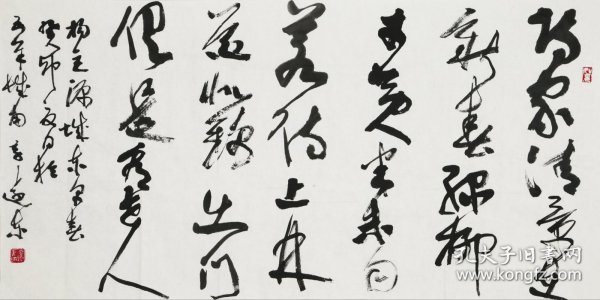 诗家清景在
新春绿柳
才黄半未匀
若待上林
花似锦出门
俱是看花人
杨巨源城东早春
癸卯夏日於
五羊城南
孔夫子旧书网
www.kongfz.com